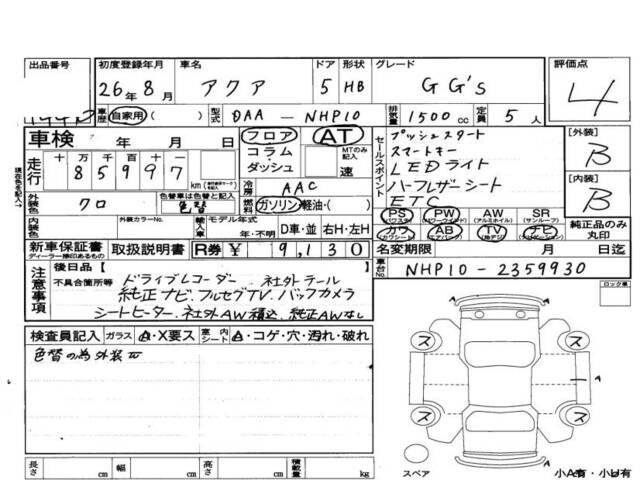 出品番号 初度登録年月 車名 ドア 形状 グレード 評価点
26年8月 アクア 5 HB G G's 4
車歴 自家用 ( ) 型式 DAA - NHP10 排気量 1500 cc 定員 5 人
車検 年 月 日 フロア AT
コラム・ダッシュ MTのみ記入 速
現在色を記入→
走行 十 万 千 百 十 一
8 5 9 9 7 km
冷房 AAC
外装色 クロ 色替車は色替と記入 燃料 ガソリン・軽油・( )
内装色 外装カラーNo. 輸入車 モデル年式 年・不明 D車・並 右H・左H
セールスポイント
プッシュスタート
スマートキー
LEDライト
ハーフレザーシート
ETC
PS PW AW SR
(パワステ) (パワーウインド) (アルミホイル) (サンルーフ)
カワ AB TV ナビ
純正品のみ丸印
[外装] B
[内装] B
新車保証書 取扱説明書 R券 ¥ 9,130
ディーラー捺印のあるもの
名変期限 月 日迄
車台No. NHP10-2359930
注意事項 後日品【 】
不具合箇所等 ドライブレコーダー 社外テール
純正ナビ.フルセグTV.バックカメラ
シートヒーター.社外AW積込.純正AWなし
ロック車
検査員記入 ガラス A・X要ス 室内シート A・コゲ・穴・汚れ・破れ
色替の為外装
A
ス ス
A A
ス ス
A
スペア
長さ cm 幅 cm 高さ cm 積載量 kg
小A有・小U有